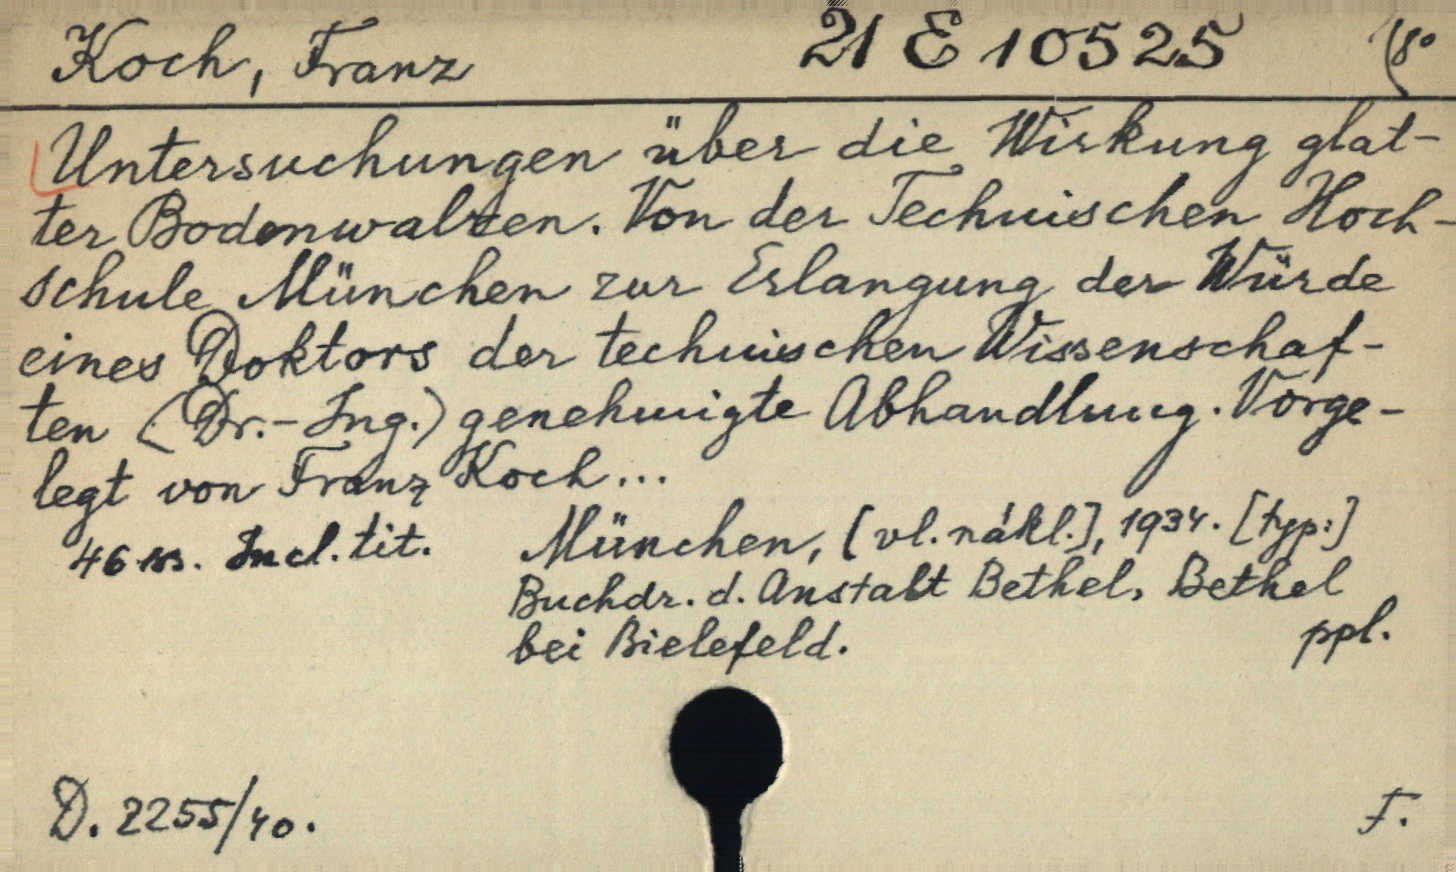 Koch, Franz 21 E 10525 (8°
Untersuchungen über die Wirkung glat-
ter Bodenwalzen. Von der Technischen Hoch-
schule München zur Erlangung der Würde
eines Doktors der technischen Wissenschaf-
ten (Dr.-Ing.) genehmigte Abhandlung. Vorge-
legt von Franz Koch...
46 ss. Incl. tit. München, [vl. nákl.], 1934. [typ:]
Buchdr. d. Anstalt Bethel, Bethel
bei Bielefeld. ppl.
D. 2255/40. F.